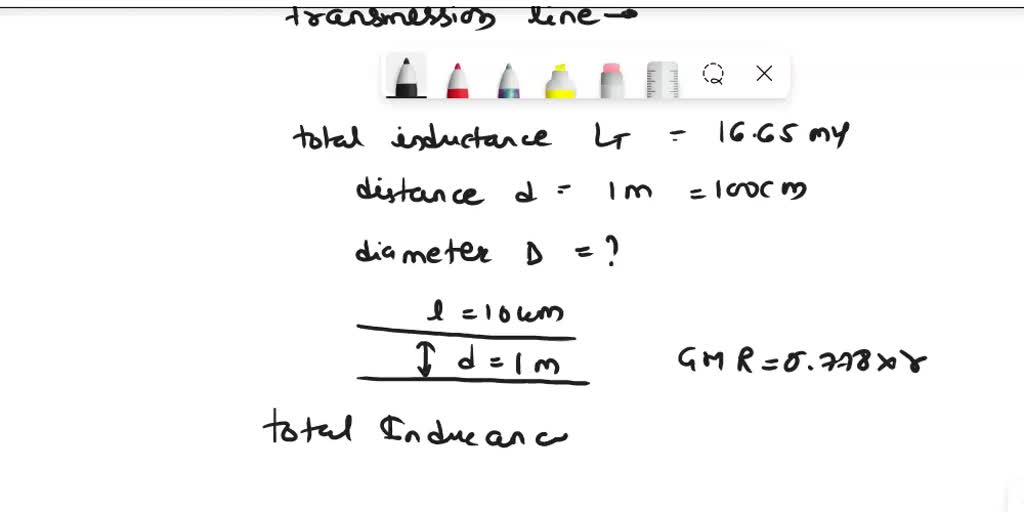 transmession line →
total inductance LT = 16.65 mH
distance d = 1 m = 100 cm
diameter D = ?
l = 10 km
d = 1 m
GMR = 0.778 × r
total Inducanc